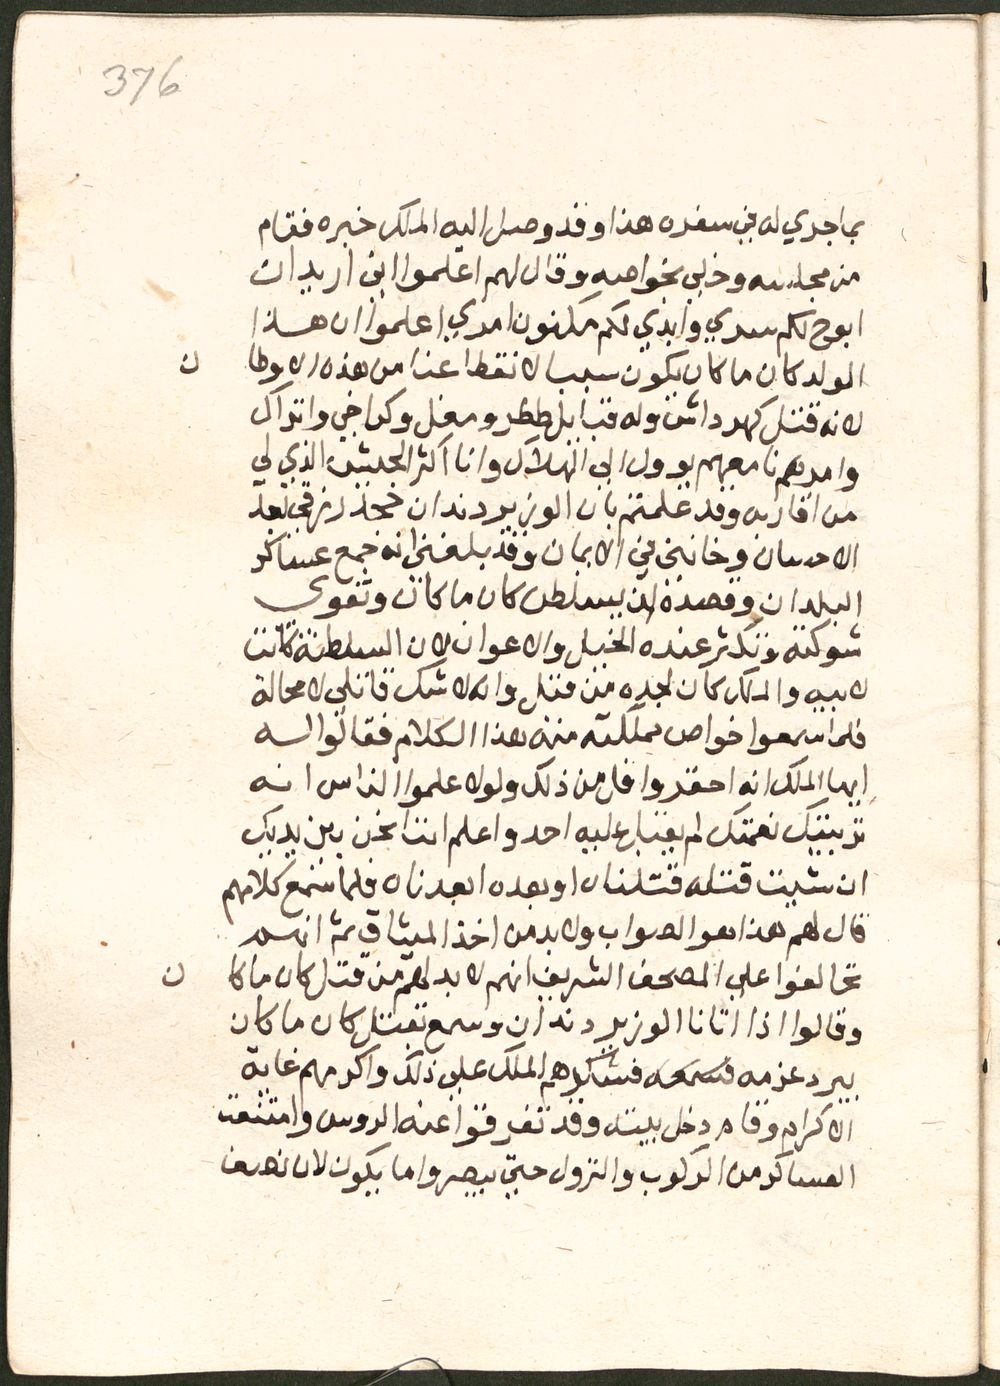 376
بماجري له في سفره هذا وقد وصل اليه الملك خبره فقام
من مجلسه وخلي بخواصه وقال لهم اعلموا اني اريد ان
ابوح لكم سري وابدي لكم مكنون امري اعلموا ان هذا
الولد كان ما كان يكون سببا لانقطاعنا من هذه الاوطا ن
لانه قتل كهرداش وله قبايل ططر ومغل وكراخي واتراك
وامرهم نا معهم يوول الي الهلاك وانا اكثر الجيش الذي لي
من اقاربه وقد علمتم بان الوزير دندان جحد رزقي بعد
الاحسان وخانني في الايمان وقد بلغني انه جمع عساكر
البلدان وقصده ان يسلطن كان ما كان وتقوي
شوكته وتكثر عنده الخيل والاعوان لان السلطنة كانت
لابيه والملك كان لجده من قبل وانه لا شك قاتلي لا محالة
فلما سمعوا خواص مملكته منه هذا الكلام فقالوا له
ايها الملك انه احقر واقل من ذلك ولولا علموا الناس انه
تربيتك نعمتك لم يقتبا عليه احد واعلم اننا نحن بين يديك
ان شيت قتله قتلناه او بعده ابعدناه فلما سمع كلامهم
قال لهم هذا هو الصواب ولابد من اخذ الميثاق ثم انهم
تحالفوا علي المصحف الشريف انهم لابد لهم من قتل كان ما كا ن
وقالوا اذا اتانا الوزير دندان وسمع بقتل كان ما كان
يبرد عزمه فشكرهم الملك علي ذلك واكرمهم غاية
الاكرام وقام دخل بيته وقد تفرقوا عنه الروس وامتنعت
العساكر من الركوب والنزول حتي يبصروا ما يكون لان نصف